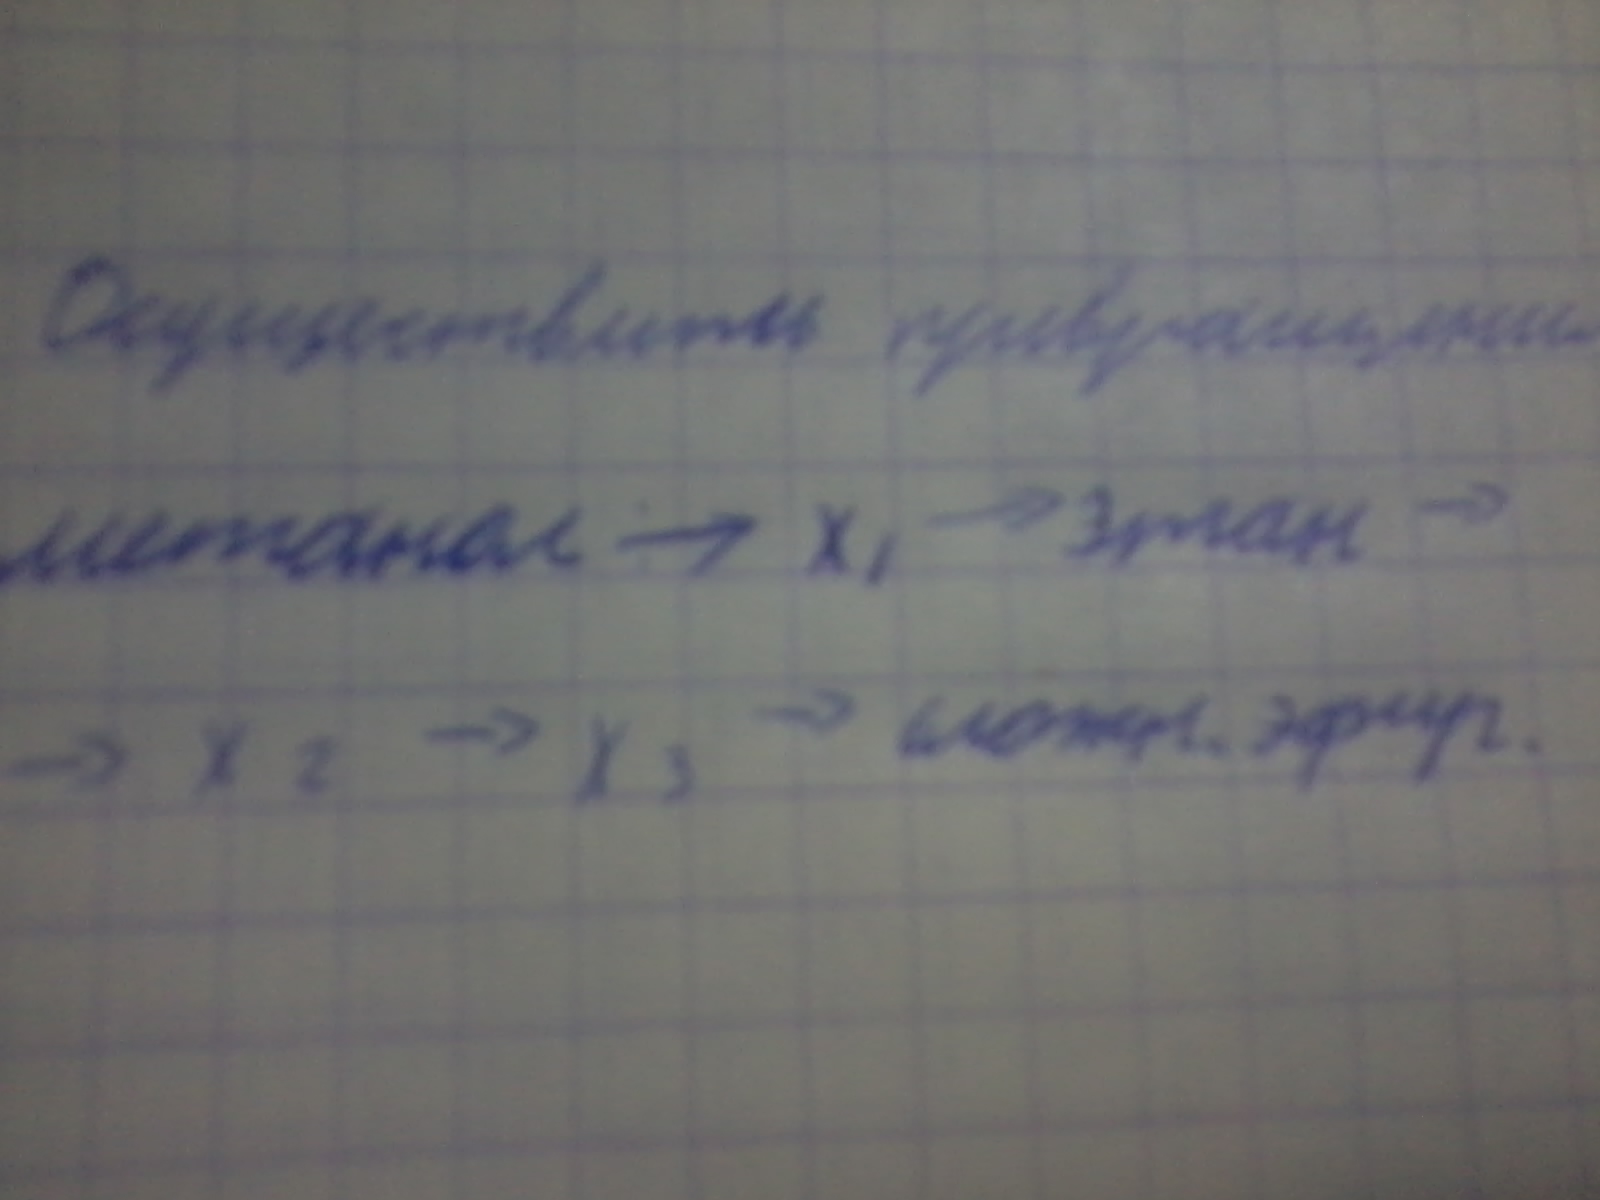 Осуществить превращения
метанол → X₁ → Этан →
→ X₂ → X₃ → сложн. эфир.